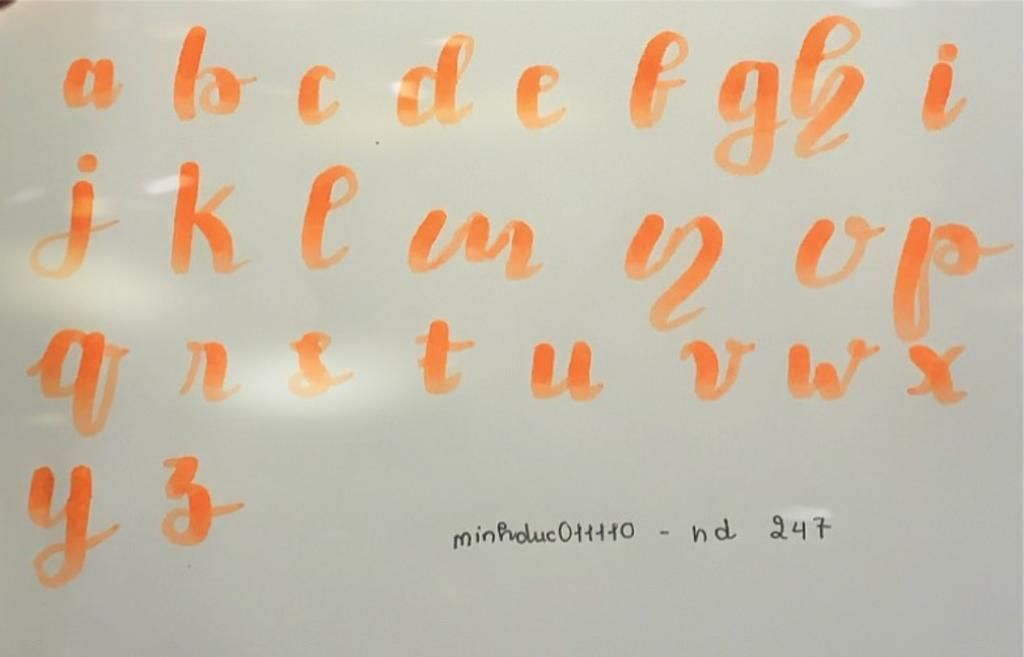 a b c d e f g h i
j k l m n o p
q r s t u v w x
y z
minhduc011110 - nd 247